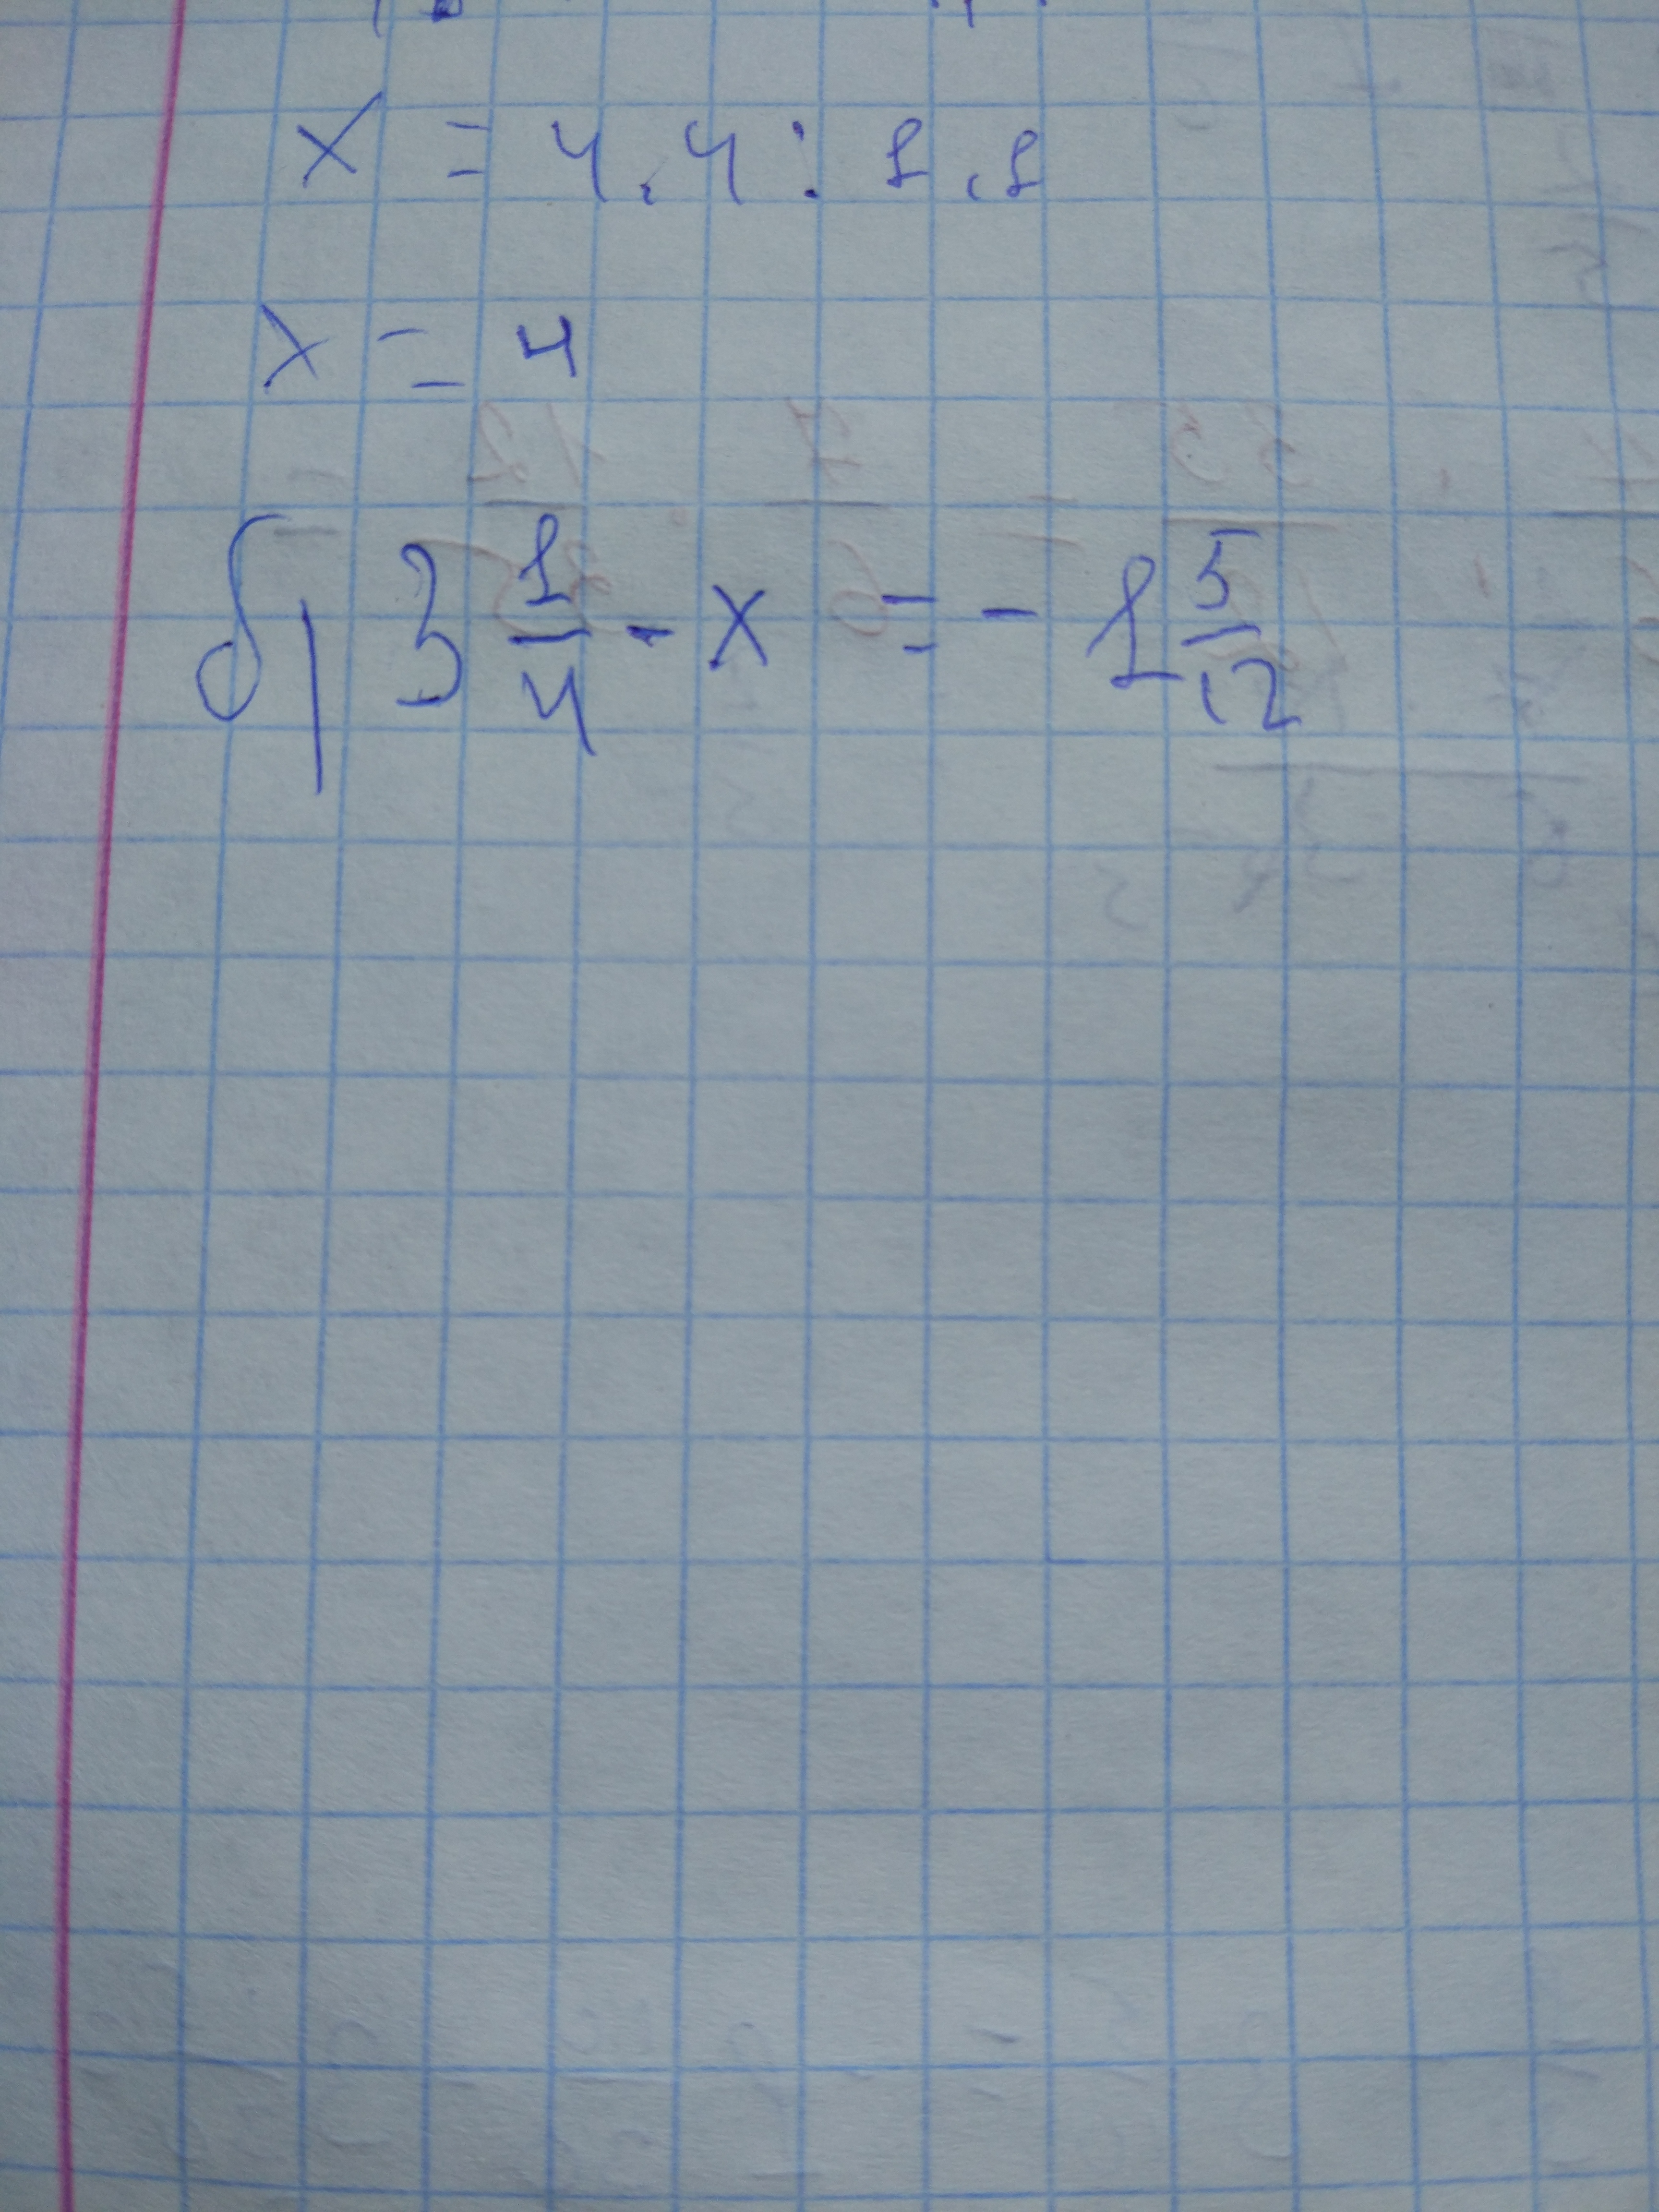 x = 4.4 : 1,1
x = 4
б) 3 1/4 - x = - 1 5/12